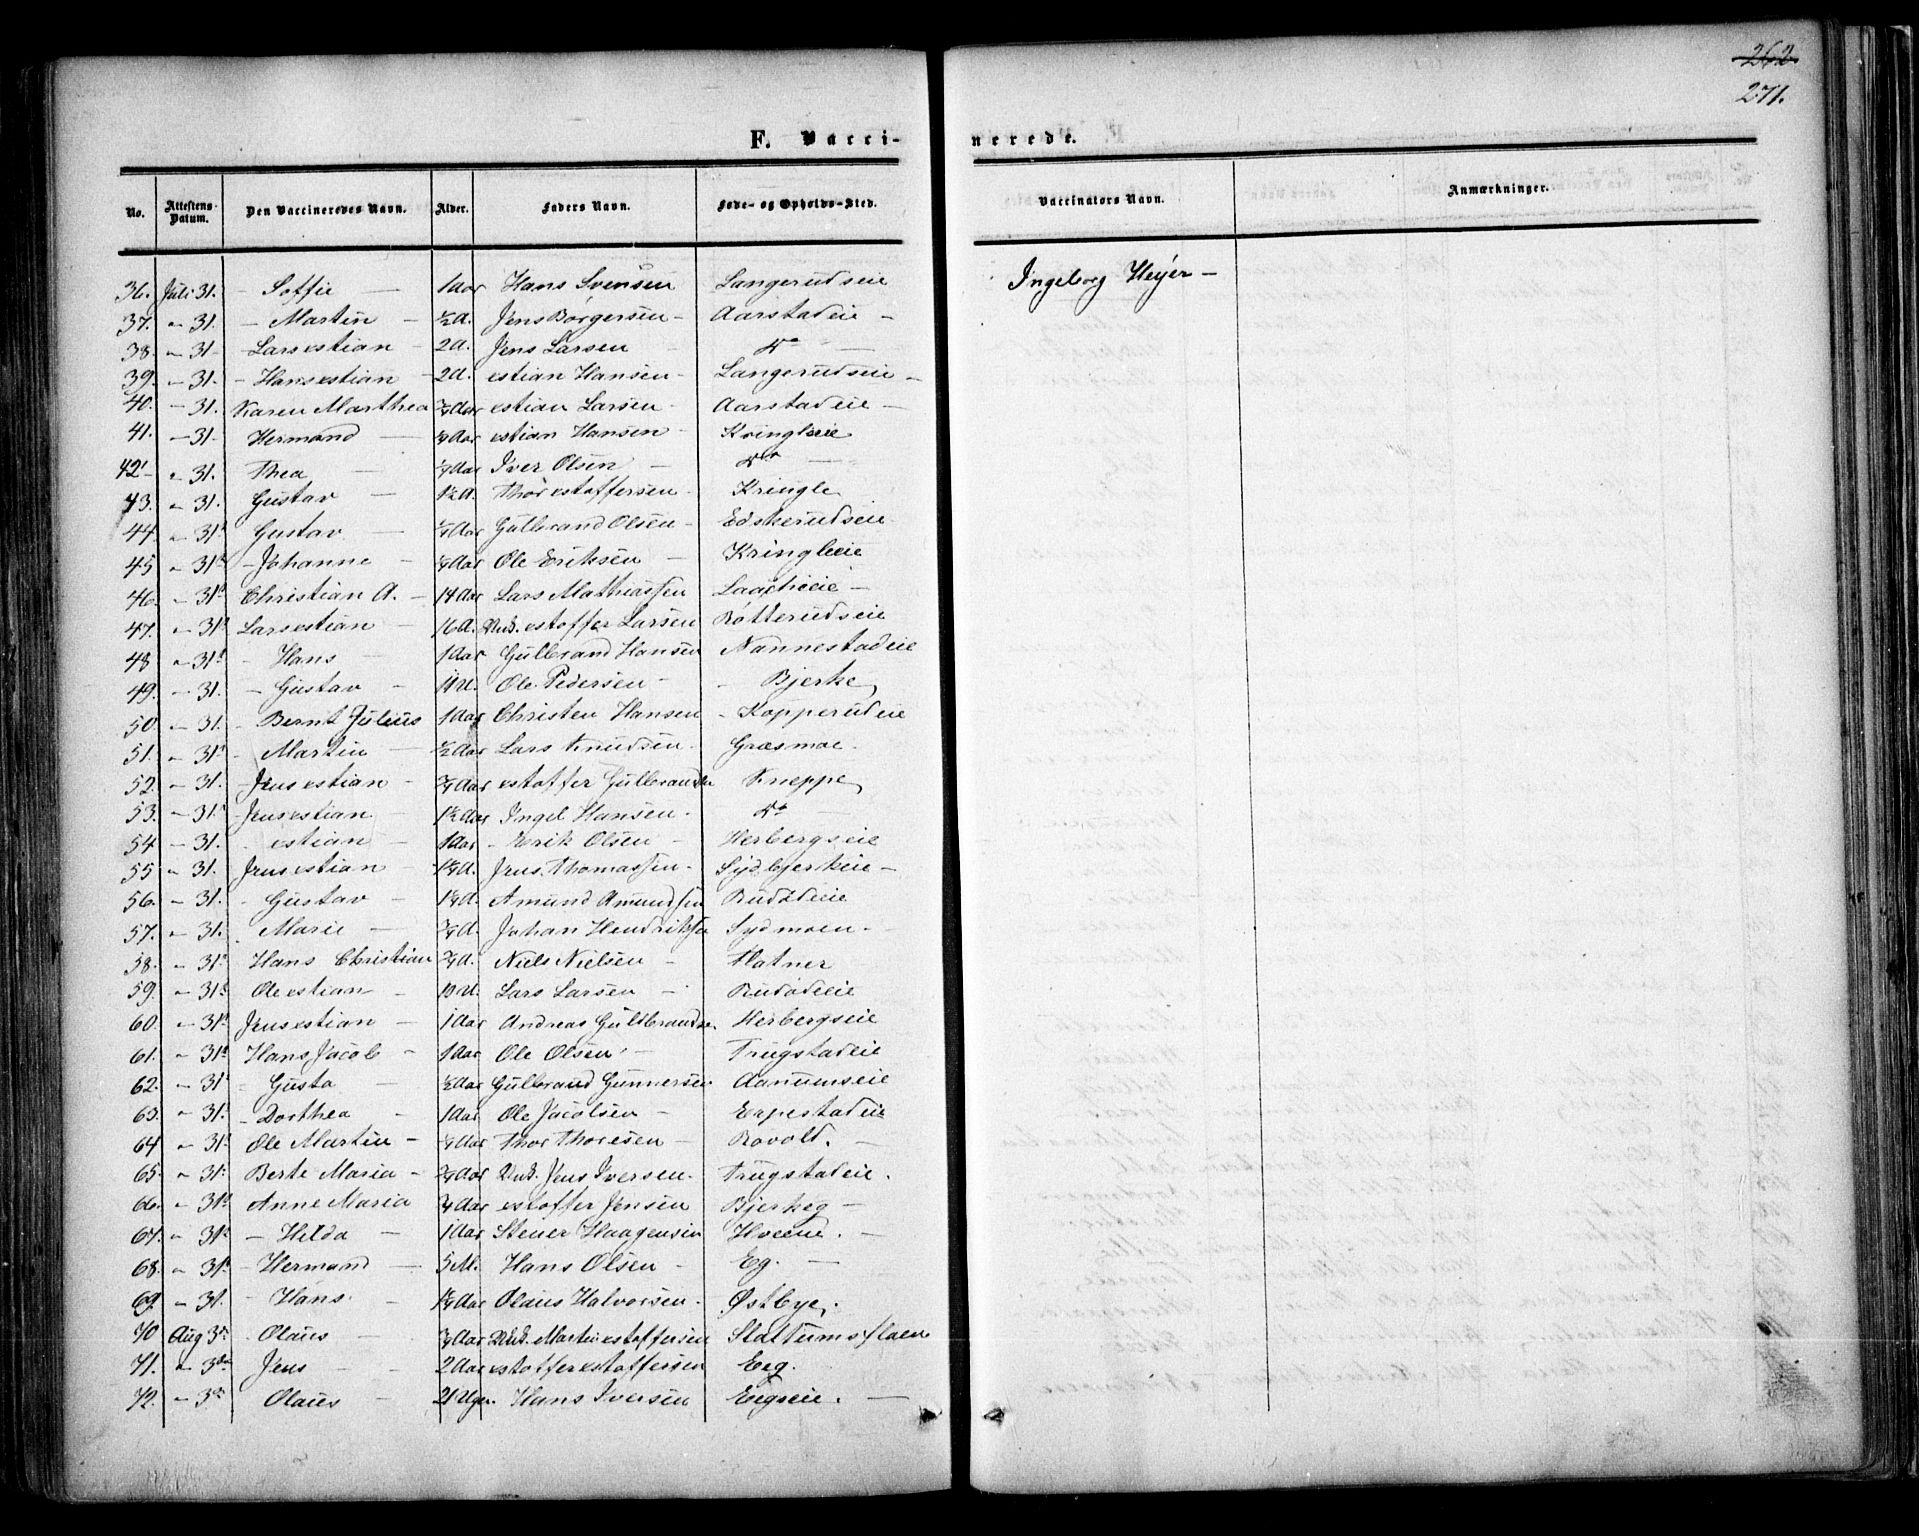 262.
271.
F. Vaccinerede.
No. Attestens-Datum. Den Vaccineredes Navn. Alder. Faders Navn. Føde- og Opholds-Sted. Vaccinators Navn. Anmærkninger.
36. Juli 31. - Soffie - 1 Aar Hans Svensen Langerudseie Ingeborg Heyer -
37. " 31. - Martin - ½ A. Jens Borgersen - Aarstadeie -
38. - 31 - Larsestian - 2 A. Jens Larsen - do -
39. - 31. - Hansestian - 2 A. estian Hansen - Langerudseie -
40. - 31. Karen Marthea Aar estian Larsen - Aarstadeie -
41. - 31 - Hermand - Aar estian Hansen - Kringleeie
42 - " 31. Thea - Aar Iver Olsen - do -
43. " 31. Gustav - 1½ A. Thor estoffersen - Kringle
44. " 31 Gustav - Aar Gulbrand Olsen - Edskerudseie
45 " 31 - Johanne - Aar Ole Eriksen - Kringleeie
46. - 31 Christian A. - 14 Aar Lars Mathiassen -
47. " 31 Larsestian - 16 A. estoffer Larsen Røtterudseie
48 " 31 - Hans - 1 Aar Gulbrand Hansen Nannestadeie
49. - 31. - Gustav - Ole Pedersen - - Bjerke
50. - 31. - Bernt Julius 1 Aar Christen Hansen - Kopperudeie
51. - 31 - Martin - ½ Aar Lars Knudsen - Græsmoe -
52. - 31. - Jensestian - Aar estoffer Gulbrandsen Kneppe
53. - 31 - Jensestian - 1½ Aar Ingel Hansen - do -
54 - 31. - estian - 1 Aar - Erik Olsen - Herbergseie
55 " 31. Jensestian - A. Jens Thomassen - Sydbjerkeie -
56. - 31. - Gustav - A. Amund Amundsen
57. " 31. - Marie - A. Johan Hendriksen Sydmoen -
58. " 31 - Hans Christian A. Niels Nielsen - Holtner
59. " 31 Oleestian - Lars Larsen -
60. " 31 Jensestian - 1 Aar Andreas Gulbrandsen Herbergseie
61. " 31 Hans Jacob - 1 Aar Ole Olsen - Trugstadeie
62. " 31 - Gusta - ½ Aar Gulbrand Gunnersen
63. " 31. - Dorthea - 1 Aar Ole Jacobsen - Erpestadeie
64 " 31 Ole Martin - Aar Thor Thoresen - Rovold. -
65. " 31. Berte Maria - Aar Jens Iversen - Trugstadeie.
66. " 31 Anne Maria Aar estoffer Jensen Bjerkeg -
67. " 31 - Hilda - 1 Aar Stener Haagensen -
68. " 31 - Hermand - 5 M. Hans Olsen - Eg. -
69. " 31. - Hans - Aar Olaus Halvorsen - Østbye.
70 Aug 3 Olaus - Aar Martin estoffersen
71. " 3 Jens - 2 Aar estoffer estoffersen Eeg.
72. " 3 Olaus 21 Uger Hans Iversen Eegseie. -